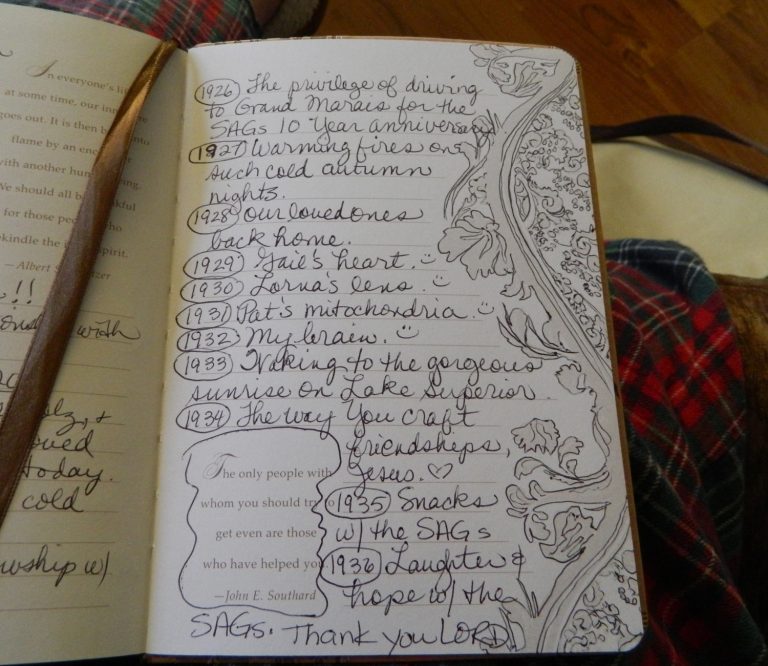 In everyone's li
at some time, our inn re
goes out. It is then b into
flame by an enc
with another hum ing.
We should all b kful
for those peo ho
rekindle the i spirit.
—Albert S tzer
!!
with
+
oved
today.
cold
wship w/
1926 The privilege of driving
to Grand Marais for the
SAGs 10 Year anniversary
1927 Warming fires on
such cold autumn
nights.
1928 Our loved ones
back home.
1929 Gail's heart. ☺
1930 Lorna's lens. ☺
1931 Pat's mitochondria. ☺
1932 My brain. ☺
1933 Waking to the gorgeous
sunrise on Lake Superior.
1934 The way You craft
friendships,
Jesus. ♡
The only people with
whom you should try to
get even are those
who have helped you
—John E. Southard
1935 Snacks
w/ the SAGs
1936 Laughter &
hope w/ the
SAGs. Thank you LORD.